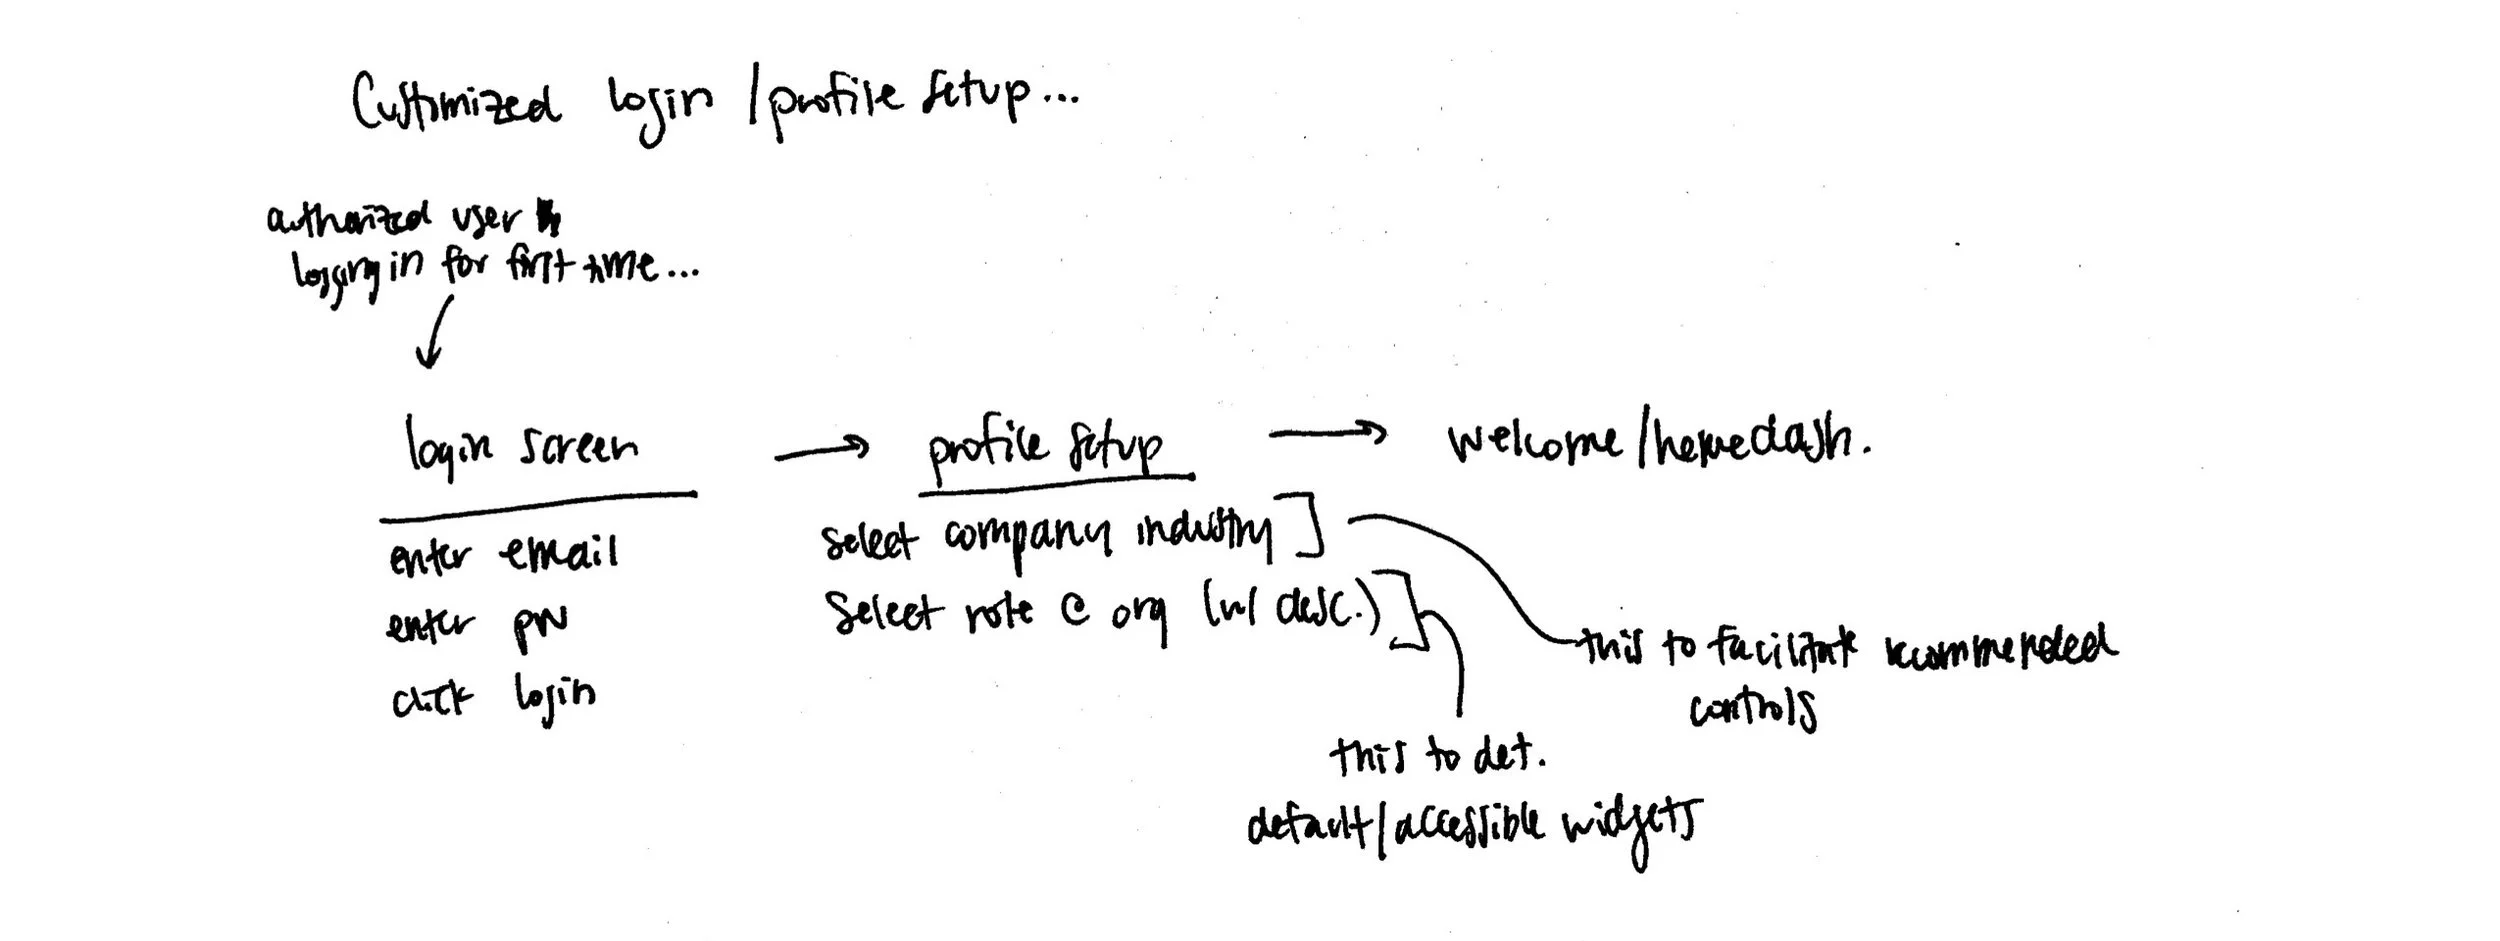 Customized login / profile setup...
authorized user
logging in for first time...
login screen
enter email
enter pw
click login
profile setup
select company industry
select role @ org (w/ desc.)
welcome / homedash.
this to facilitate recommended
controls
this to det.
default/accessible widgets